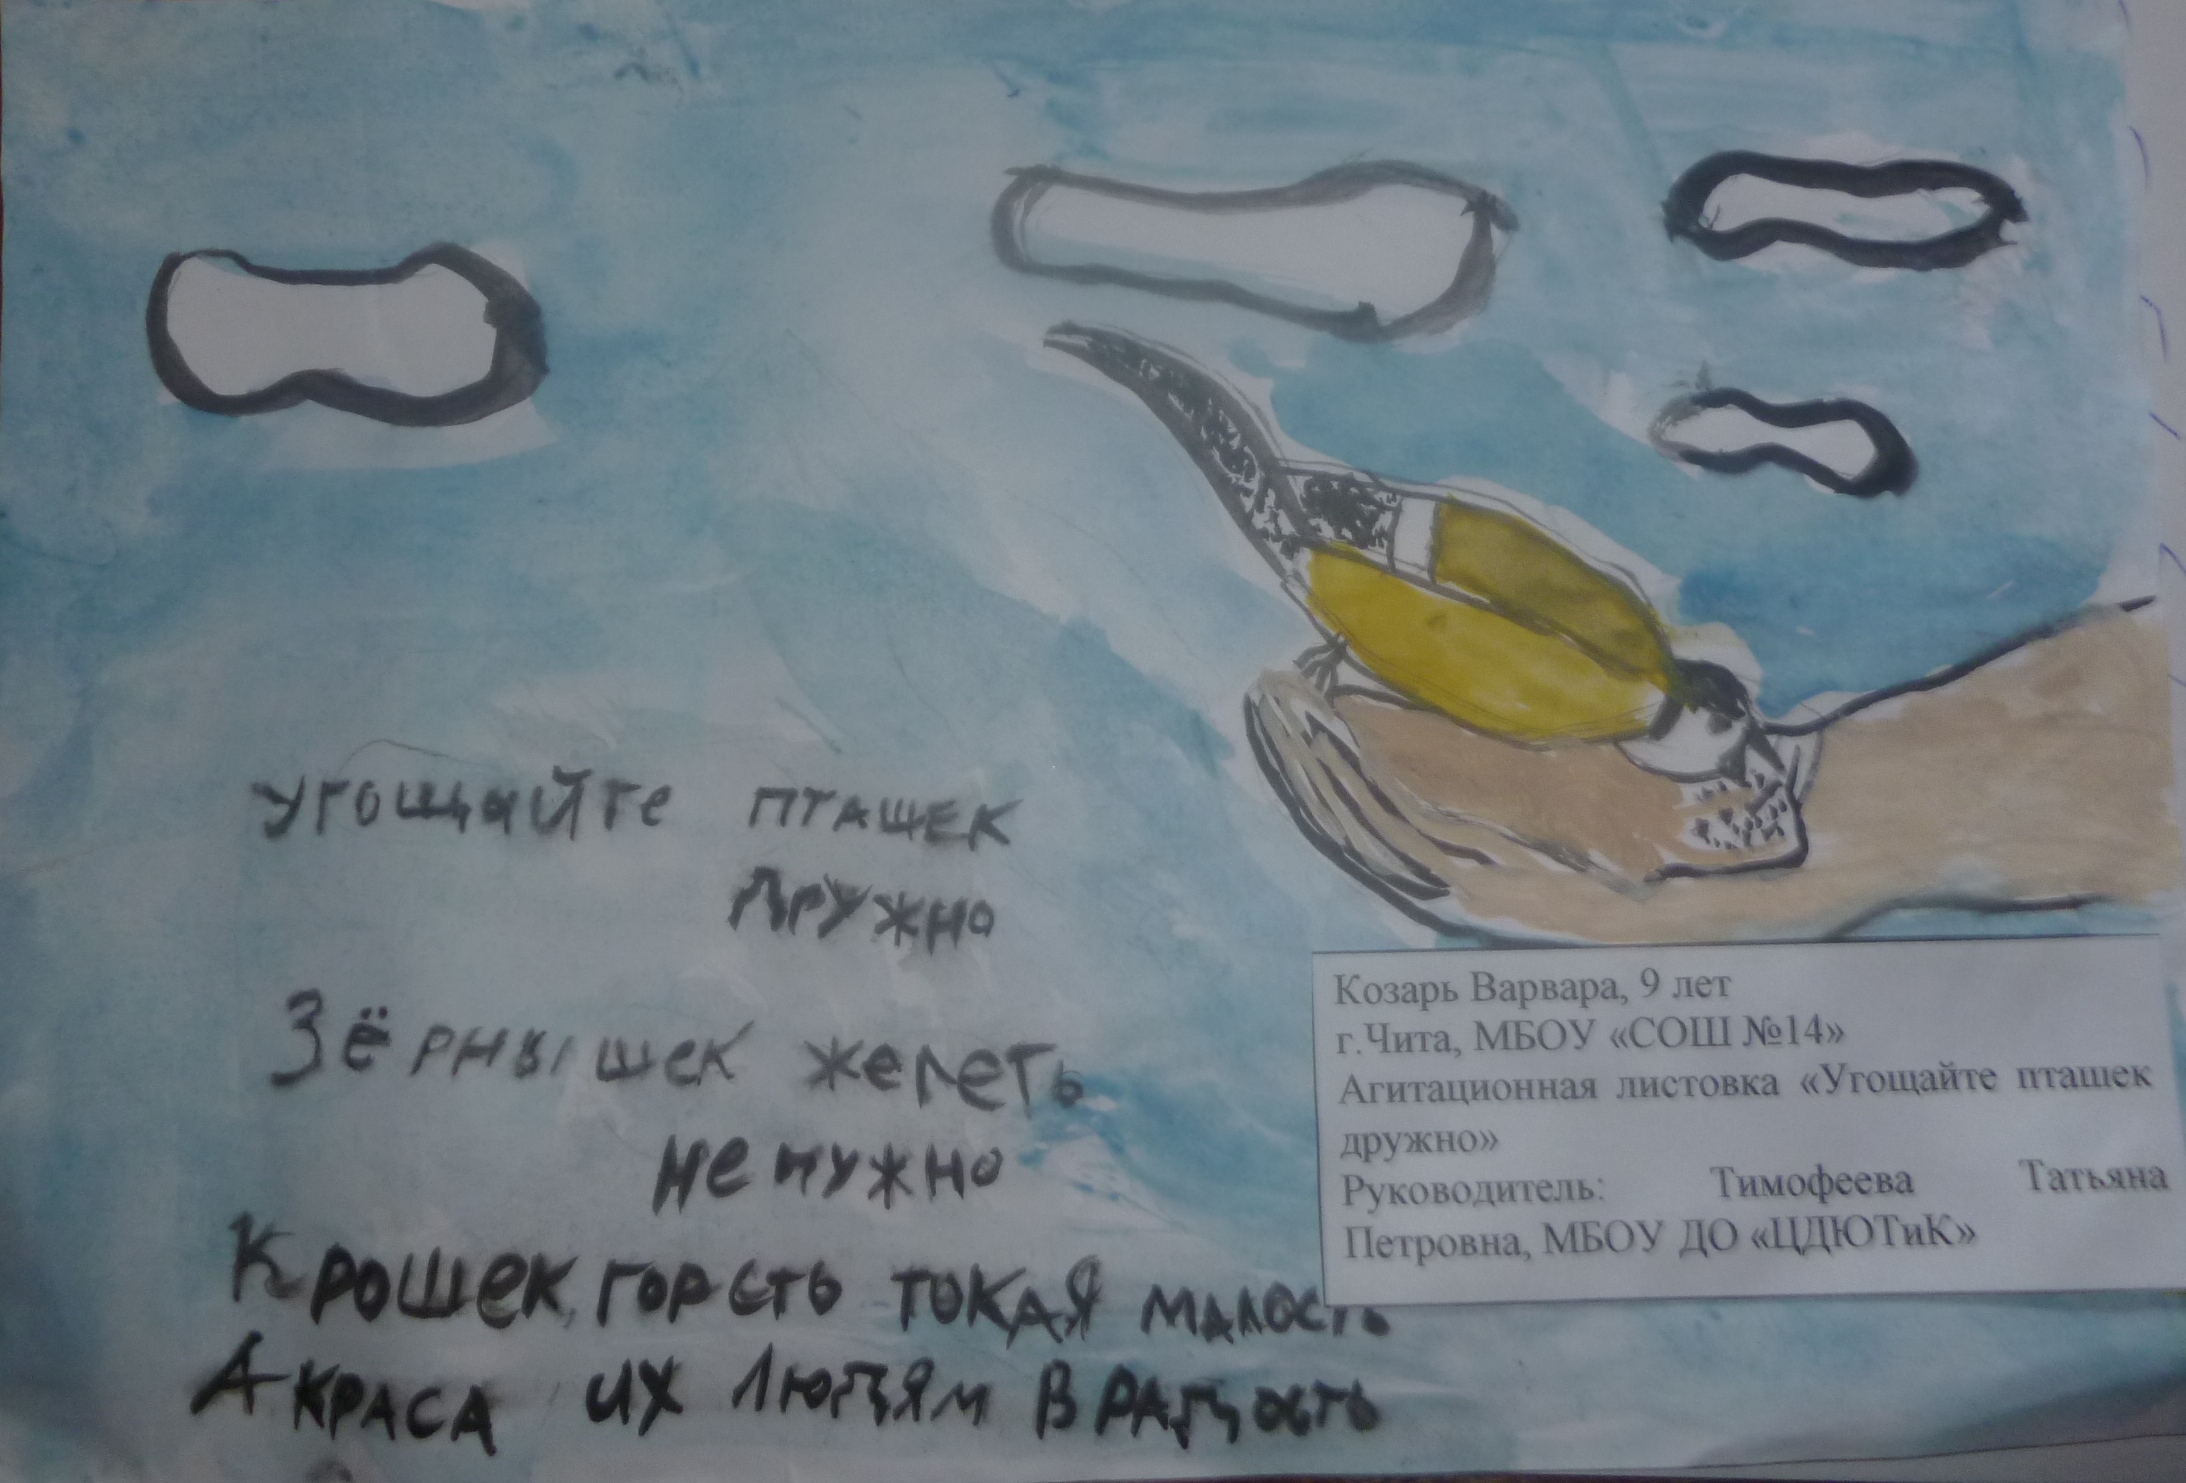 Угощайте пташек
дружно
Зёрнышек желеть
не нужно
Крошек горсть токая малость
А краса их людям в радость
Козарь Варвара, 9 лет
г.Чита, МБОУ «СОШ №14»
Агитационная листовка «Угощайте пташек
дружно»
Руководитель: Тимофеева Татьяна
Петровна, МБОУ ДО «ЦДЮТиК»